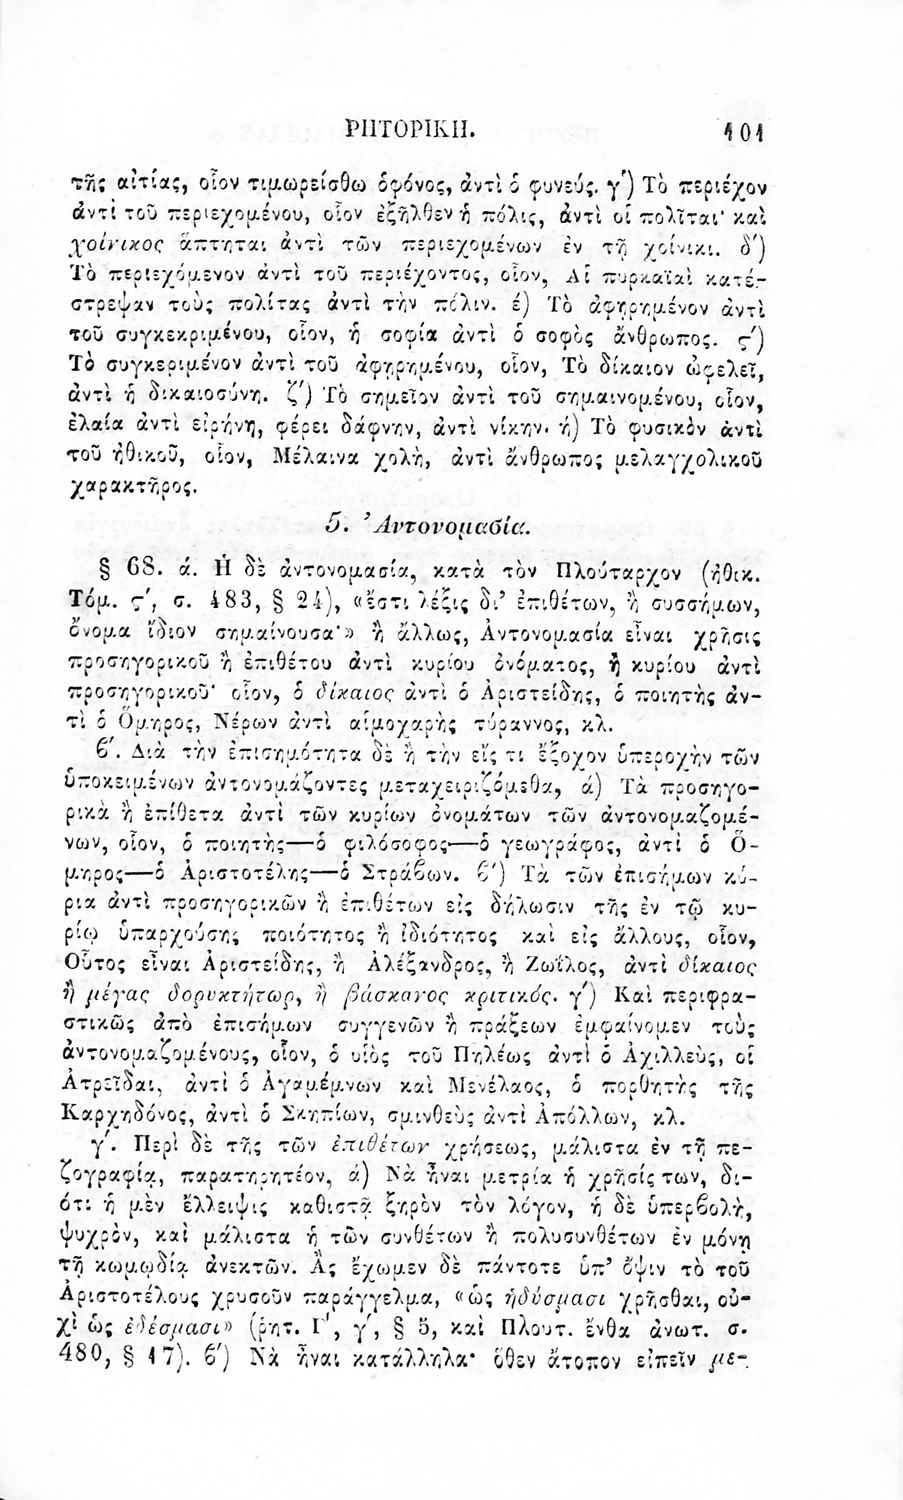 ΡΗΤΟΡΙΚΗ. 101
τῆς αἰτίας, οἷον τιμωρείσθω ὁφόνος, ἀντὶ ὁ φονεύς. γ') Τὸ περιέχον
ἀντὶ τοῦ περιεχομένου, οἷον ἐξῆλθεν ἡ πόλις, ἀντὶ οἱ πολῖται· καὶ
χοίνικος ἅπτηται ἀντὶ τῶν περιεχομένων ἐν τῇ χοίνικι. δ')
Τὸ περιεχόμενον ἀντὶ τοῦ περιέχοντος, οἷον, Αἱ πυρκαϊαὶ κατέ-
στρεψαν τοὺς πολίτας ἀντὶ τὴν πόλιν. έ) Τὸ ἀφῃρημένον ἀντὶ
τοῦ συγκεκριμένου, οἷον, ἡ σοφία ἀντὶ ὁ σοφὸς ἄνθρωπος. ς')
Τὸ συγκεριμένον ἀντὶ τοῦ ἀφῃρημένου, οἷον, Τὸ δίκαιον ὠφελεῖ,
ἀντὶ ἡ δικαιοσύνη. ζ') Τὸ σημεῖον ἀντὶ τοῦ σημαινομένου, οἷον,
ἐλαία ἀντὶ εἰρήνη, φέρει δάφνην, ἀντὶ νίκην. ή) Τὸ φυσικὸν ἀντὶ
τοῦ ἠθικοῦ, οἷον, Μέλαινα χολὴ, ἀντὶ ἄνθρωπος μελαγχολικοῦ
χαρακτῆρος.
5. Ἀντονομασία.
§ 68. ά. Ἡ δὲ ἀντονομασία, κατὰ τὸν Πλούταρχον (ἠθικ.
Τόμ. ς', σ. 483, § 24), «ἔστι λέξις δι' ἐπιθέτων, ἢ συσσήμων,
ὄνομα ἴδιον σημαίνουσα·» ἢ ἄλλως, Ἀντονομασία εἶναι χρῆσις
προσηγορικοῦ ἢ ἐπιθέτου ἀντὶ κυρίου ὀνόματος, ἢ κυρίου ἀντὶ
προσηγορικοῦ· οἷον, ὁ δίκαιος ἀντὶ ὁ Ἀριστείδης, ὁ ποιητὴς ἀν-
τὶ ὁ Ὅμηρος, Νέρων ἀντὶ αἱμοχαρὴς τύραννος, κλ.
ϐ'. Διὰ τὴν ἐπισημότητα δὲ ἢ τὴν εἴς τι ἔξοχον ὑπεροχὴν τῶν
ὑποκειμένων ἀντονομάζοντες μεταχειριζόμεθα, ά) Τὰ προσηγο-
ρικὰ ἢ ἐπίθετα ἀντὶ τῶν κυρίων ὀνομάτων τῶν ἀντονομαζομέ-
νων, οἷον, ὁ ποιητὴς—ὁ φιλόσοφος—ὁ γεωγράφος, ἀντὶ ὁ Ὅ-
μηρος—ὁ Ἀριστοτέλης—ὁ Στράϐων. ϐ') Τὰ τῶν ἐπισήμων κύ-
ρια ἀντὶ προσηγορικῶν ἢ ἐπιθέτων εἰς δήλωσιν τῆς ἐν τῷ κυ-
ρίῳ ὑπαρχούσης ποιότητος ἢ ἰδιότητος καὶ εἰς ἄλλους, οἷον,
Οὗτος εἶναι Ἀριστείδης, ἢ Ἀλέξανδρος, ἢ Ζωΐλος, ἀντὶ δίκαιος
ἢ μέγας δορυκτήτωρ, ἢ βάσκανος κριτικός. γ') Καὶ περιφρα-
στικῶς ἀπὸ ἐπισήμων συγγενῶν ἢ πράξεων ἐμφαίνομεν τοὺς
ἀντονομαζομένους, οἷον, ὁ υἱὸς τοῦ Πηλέως ἀντὶ ὁ Ἀχιλλεὺς, οἱ
Ἀτρεῖδαι, ἀντὶ ὁ Ἀγαμέμνων καὶ Μενέλαος, ὁ πορθητὴς τῆς
Καρχηδόνος, ἀντὶ ὁ Σκηπίων, σμινθεὺς ἀντὶ Ἀπόλλων, κλ.
γ'. Περὶ δὲ τῆς τῶν ἐπιθέτων χρήσεως, μάλιστα ἐν τῇ πε-
ζογραφίᾳ, παρατηρητέον, ά) Νὰ ἦναι μετρία ἡ χρῆσίς των, δι-
ότι ἡ μὲν ἔλλειψις καθιστᾷ ξηρὸν τὸν λόγον, ἡ δὲ ὑπερϐολὴ,
ψυχρὸν, καὶ μάλιστα ἡ τῶν συνθέτων ἢ πολυσυνθέτων ἐν μόνῃ
τῇ κωμῳδίᾳ ἀνεκτῶν. Ἂς ἔχωμεν δὲ πάντοτε ὑπ' ὄψιν τὸ τοῦ
Ἀριστοτέλους χρυσοῦν παράγγελμα, «ὡς ἡδύσμασι χρῆσθαι, οὐ-
χὶ ὡς ἐδέσμασι» (ῥητ. Γ', γ', § 5, καὶ Πλουτ. ἔνθα ἀνωτ. σ.
480, § 17). ϐ') Νὰ ἦναι κατάλληλα· ὅθεν ἄτοπον εἰπεῖν με-